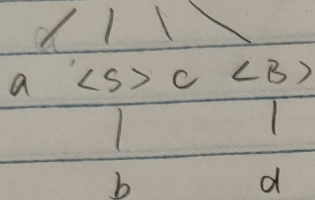 a <S> c <B>
b d